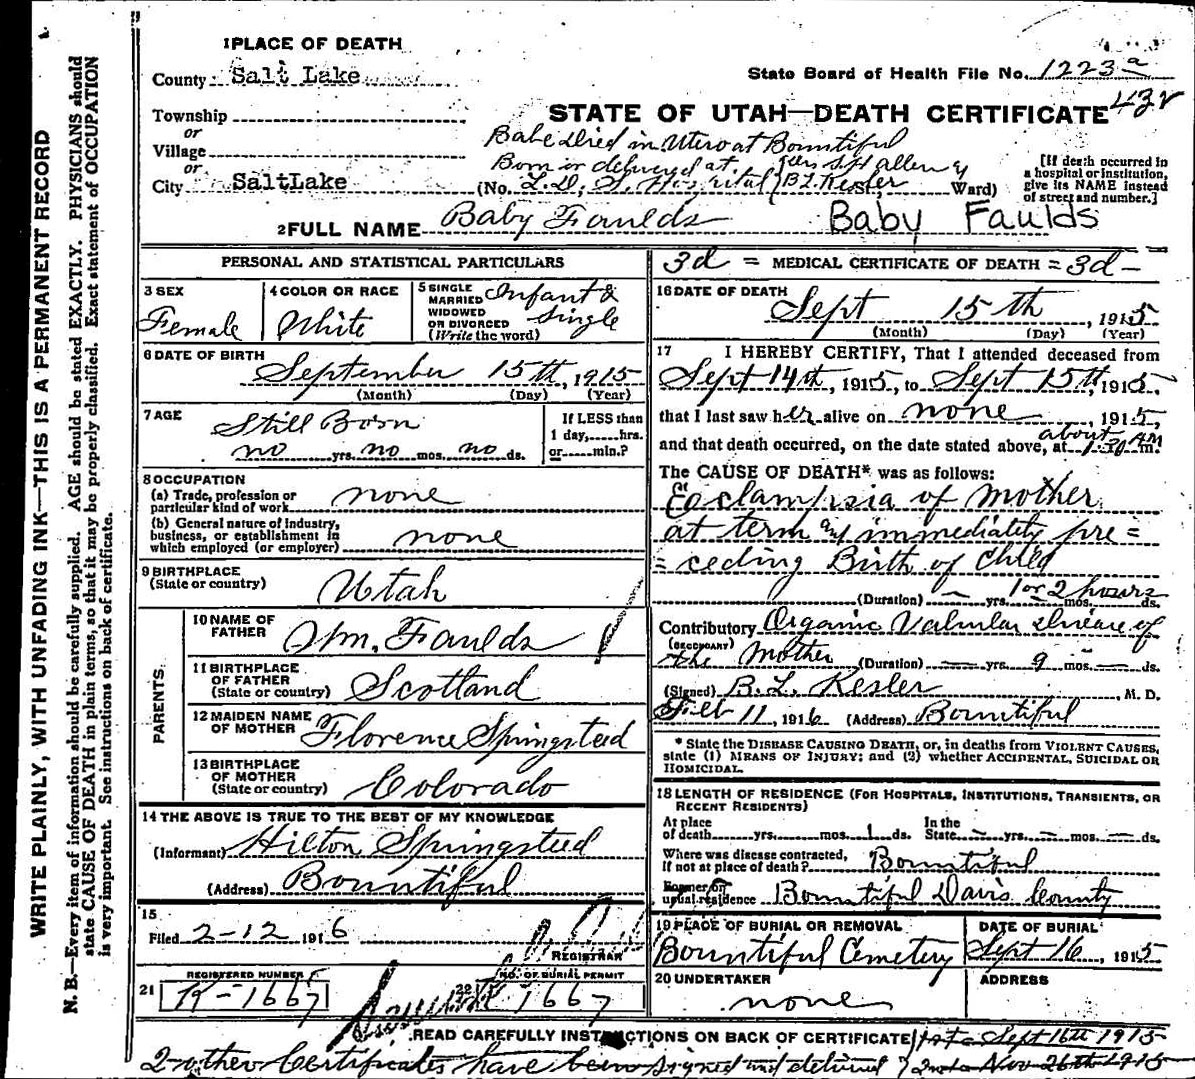 WRITE PLAINLY, WITH UNFADING INK—THIS IS A PERMANENT RECORD
N. B.—Every item of information should be carefully supplied. AGE should be stated EXACTLY. PHYSICIANS should
state CAUSE OF DEATH in plain terms, so that it may be properly classified. Exact statement of OCCUPATION
is very important. See instructions on back of certificate.
1 PLACE OF DEATH
County Salt Lake
State Board of Health File No. 1223a
432
Township
or
Village
or
City SaltLake
STATE OF UTAH—DEATH CERTIFICATE
Babe died in Utero at Bountiful
Born or delivered at
(No. L.D.S. Hospital B.L. Kesler Ward)
[If death occurred in
a hospital or institution,
give its NAME instead
of street and number.]
2 FULL NAME Baby Faulds Baby Faulds
PERSONAL AND STATISTICAL PARTICULARS
3 SEX
Female
4 COLOR OR RACE
White
5 SINGLE
MARRIED
WIDOWED
OR DIVORCED
(Write the word)
Infant &
Single
6 DATE OF BIRTH
September 15th, 1915
(Month) (Day) (Year)
7 AGE
Still Born
no yrs. no mos. no ds.
If LESS than
1 day,......hrs.
or......min.?
8 OCCUPATION
(a) Trade, profession or
particular kind of work none
(b) General nature of industry,
business, or establishment in
which employed (or employer) none
9 BIRTHPLACE
(State or country) Utah
PARENTS
10 NAME OF
FATHER Wm. Faulds
11 BIRTHPLACE
OF FATHER
(State or country) Scotland
12 MAIDEN NAME
OF MOTHER Florence Springsteed
13 BIRTHPLACE
OF MOTHER
(State or country) Colorado
14 THE ABOVE IS TRUE TO THE BEST OF MY KNOWLEDGE
(Informant) Hilton Springsteed
(Address) Bountiful
15
Filed 2-12 1916
REGISTRAR
REGISTERED NUMBER
21 R-1667
NO. OF BURIAL PERMIT
22 1667
3d = MEDICAL CERTIFICATE OF DEATH = 3d -
16 DATE OF DEATH
Sept 15th, 1915
(Month) (Day) (Year)
17 I HEREBY CERTIFY, That I attended deceased from
Sept 14th, 1915, to Sept 15th 1915,
that I last saw her alive on none, 1915,
and that death occurred, on the date stated above, at about 1:30 AM m.
The CAUSE OF DEATH* was as follows:
Eclampsia of mother
at term and immediately pre=
=ceding Birth of child
(Duration) — yrs. 1 or 2 hours mos. ds.
Contributory Organic Valvular disease of
(SECONDARY) the Mother (Duration) — yrs. 9 mos. — ds.
(Signed) B. L. Kesler, M. D.
Feb 11, 1916 (Address) Bountiful
* State the DISEASE CAUSING DEATH, or, in deaths from VIOLENT CAUSES,
state (1) MEANS OF INJURY; and (2) whether ACCIDENTAL, SUICIDAL OR
HOMICIDAL.
18 LENGTH OF RESIDENCE (FOR HOSPITALS, INSTITUTIONS, TRANSIENTS, OR
RECENT RESIDENTS)
At place
of death......yrs......mos. 1 ds.
In the
State — yrs. — mos. — ds.
Where was disease contracted,
if not at place of death? Bountiful
Former or
usual residence Bountiful Davis County
19 PLACE OF BURIAL OR REMOVAL
Bountiful Cemetery
DATE OF BURIAL
Sept 16, 1915
20 UNDERTAKER
none
ADDRESS
READ CAREFULLY INSTRUCTIONS ON BACK OF CERTIFICATE 1st = Sept 16th 1915
2- other Certificates have been signed and delivered 2nd = Nov 26th 1915